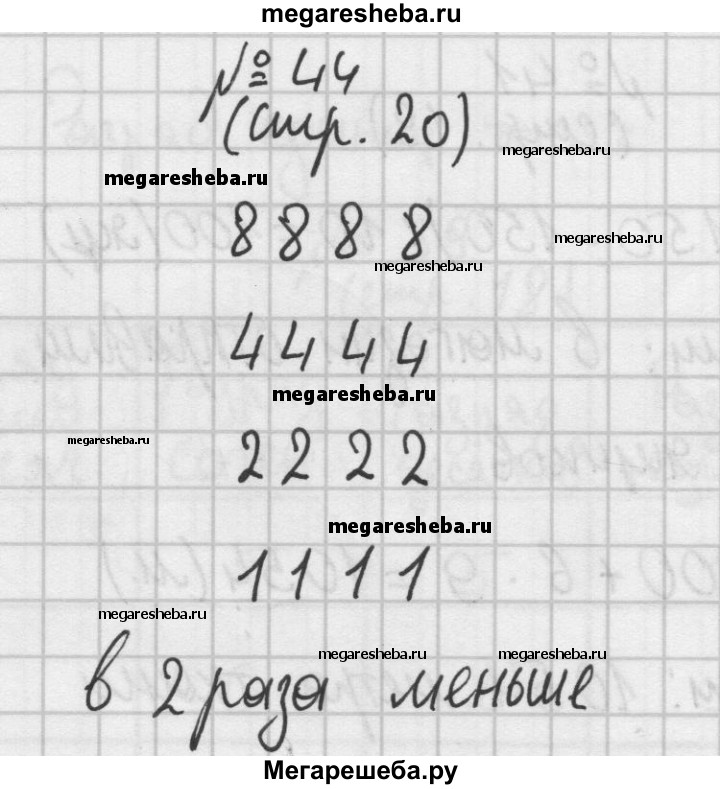 megaresheba.ru
№ 44
(стр. 20)
megaresheba.ru
megaresheba.ru
8 8 8 8
megaresheba.ru
megaresheba.ru
4 4 4 4
megaresheba.ru
megaresheba.ru
2 2 2 2
megaresheba.ru
1 1 1 1
megaresheba.ru
megaresheba.ru
megaresheba.ru
в 2 раза меньше
Мегарешеба.ру